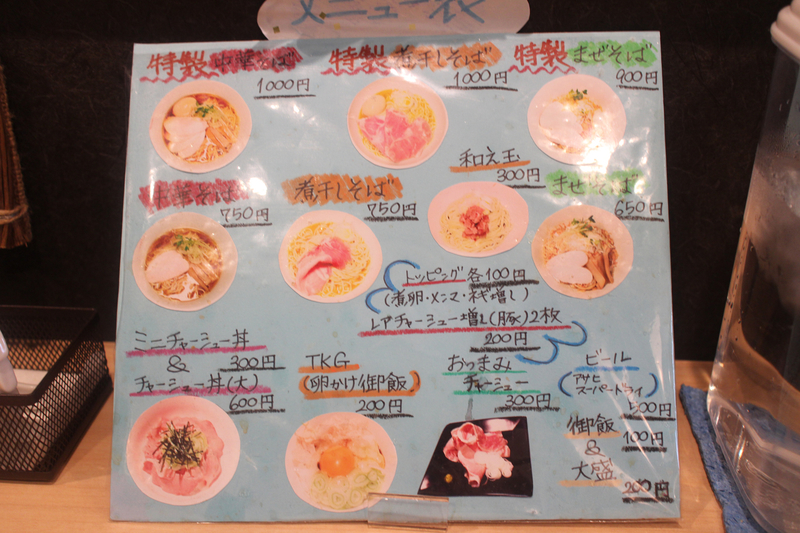 メニュー表
特製中華そば
1000円
特製煮干しそば
1000円
特製まぜそば
900円
和え玉
300円
中華そば
750円
煮干しそば
750円
まぜそば
650円
トッピング各100円
(煮卵・メンマ・ネギ増し)
レアチャーシュー増し(豚)2枚
200円
ミニチャーシュー丼
& 300円
チャーシュー丼(大)
600円
TKG
(卵かけ御飯)
200円
おつまみ
チャーシュー
300円
ビール
(アサヒ
スーパードライ)
500円
御飯
100円
&
大盛
200円